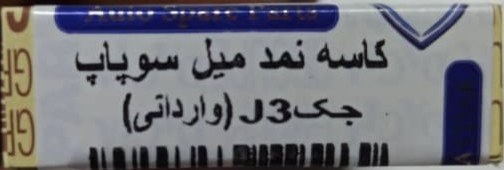 Auto Spare Parts
کاسه نمد میل سوپاپ
جک J3 (وارداتی)